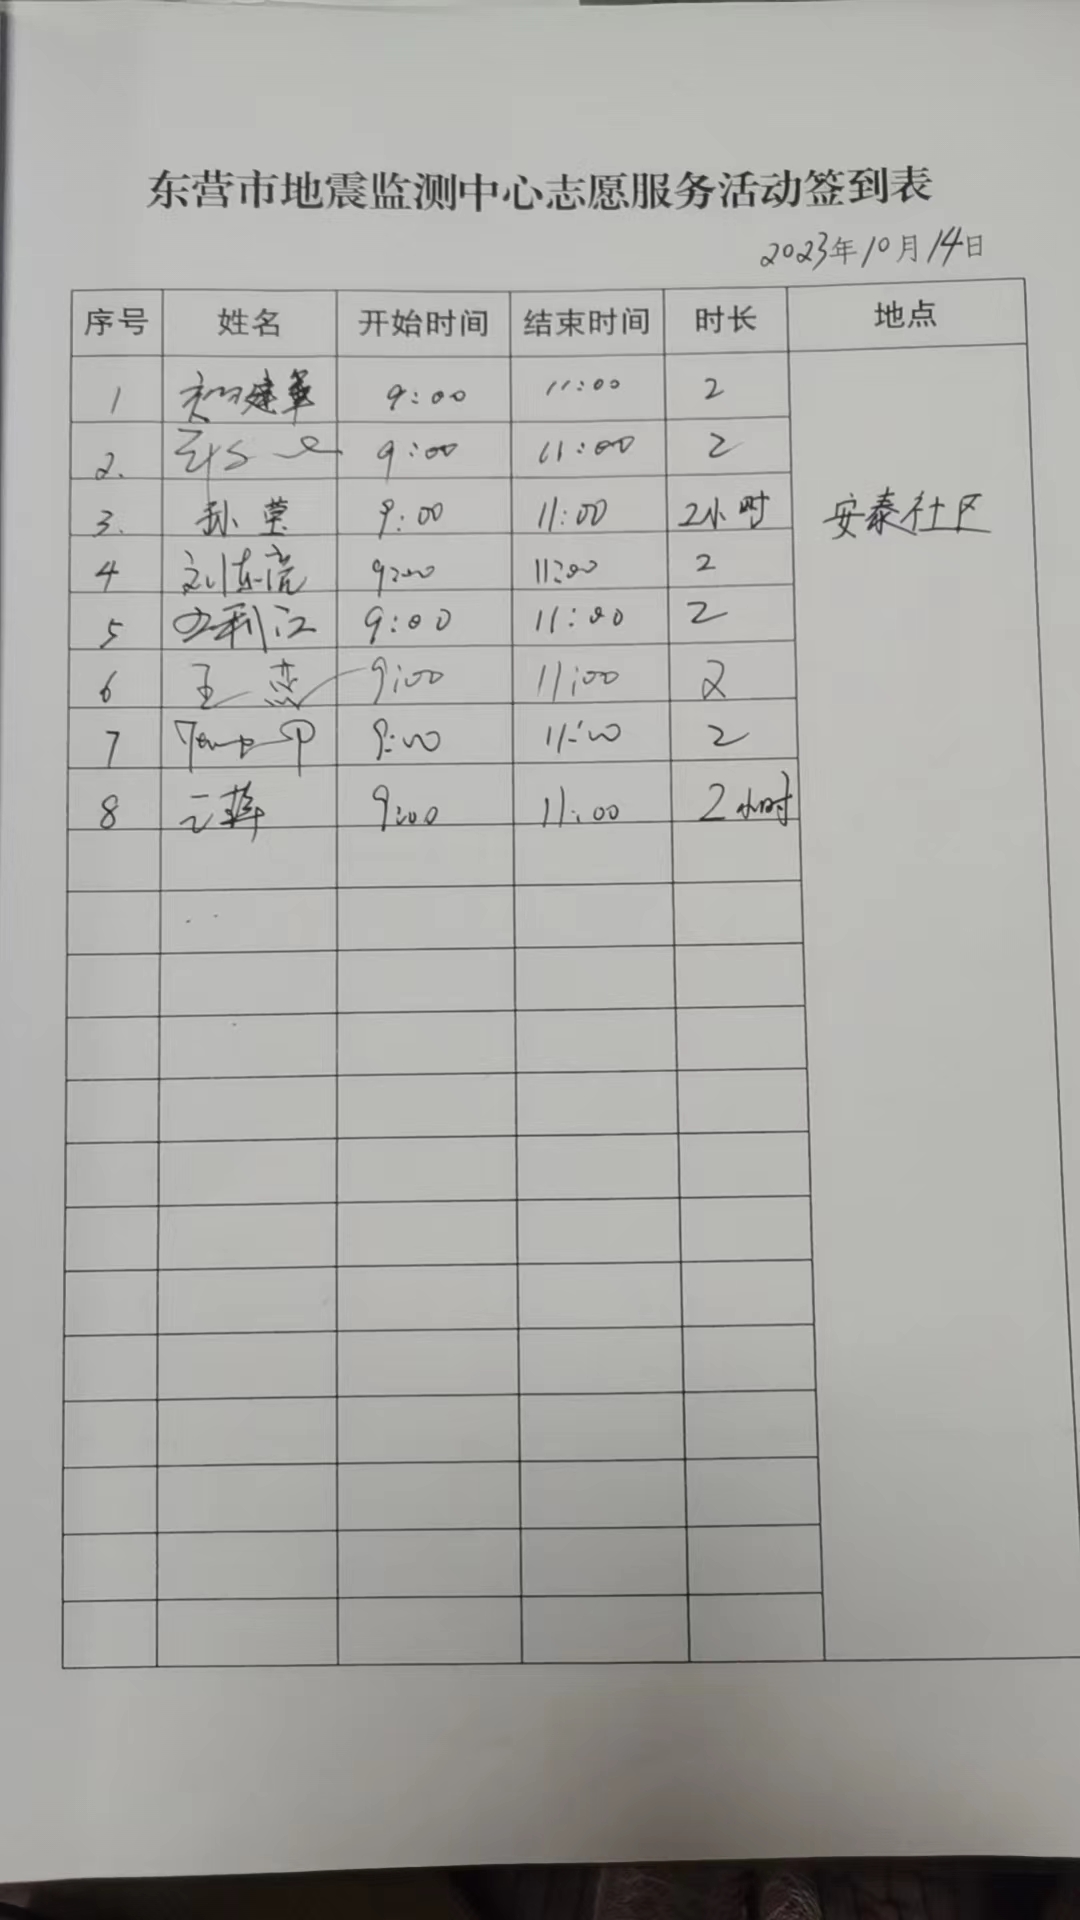 东营市地震监测中心志愿服务活动签到表
2023年10月14日
序号 姓名 开始时间 结束时间 时长 地点
1 建军 9:00 11:00 2
2. 9:00 11:00 2
3. 孙莹 9:00 11:00 2小时 安泰社区
4 刘 9:00 11:00 2
5 利江 9:00 11:00 2
6 王杰 9:00 11:00 2
7 9:00 11:00 2
8 9:00 11:00 2小时